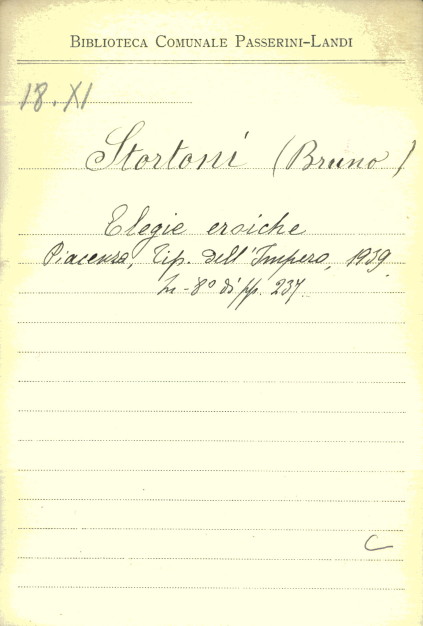 BIBLIOTECA COMUNALE PASSERINI-LANDI
18.XI
Stortoni (Bruno)
Elegie eroiche
Piacenza, Tip. dell'Impero, 1939
In-8º di pp. 237
C